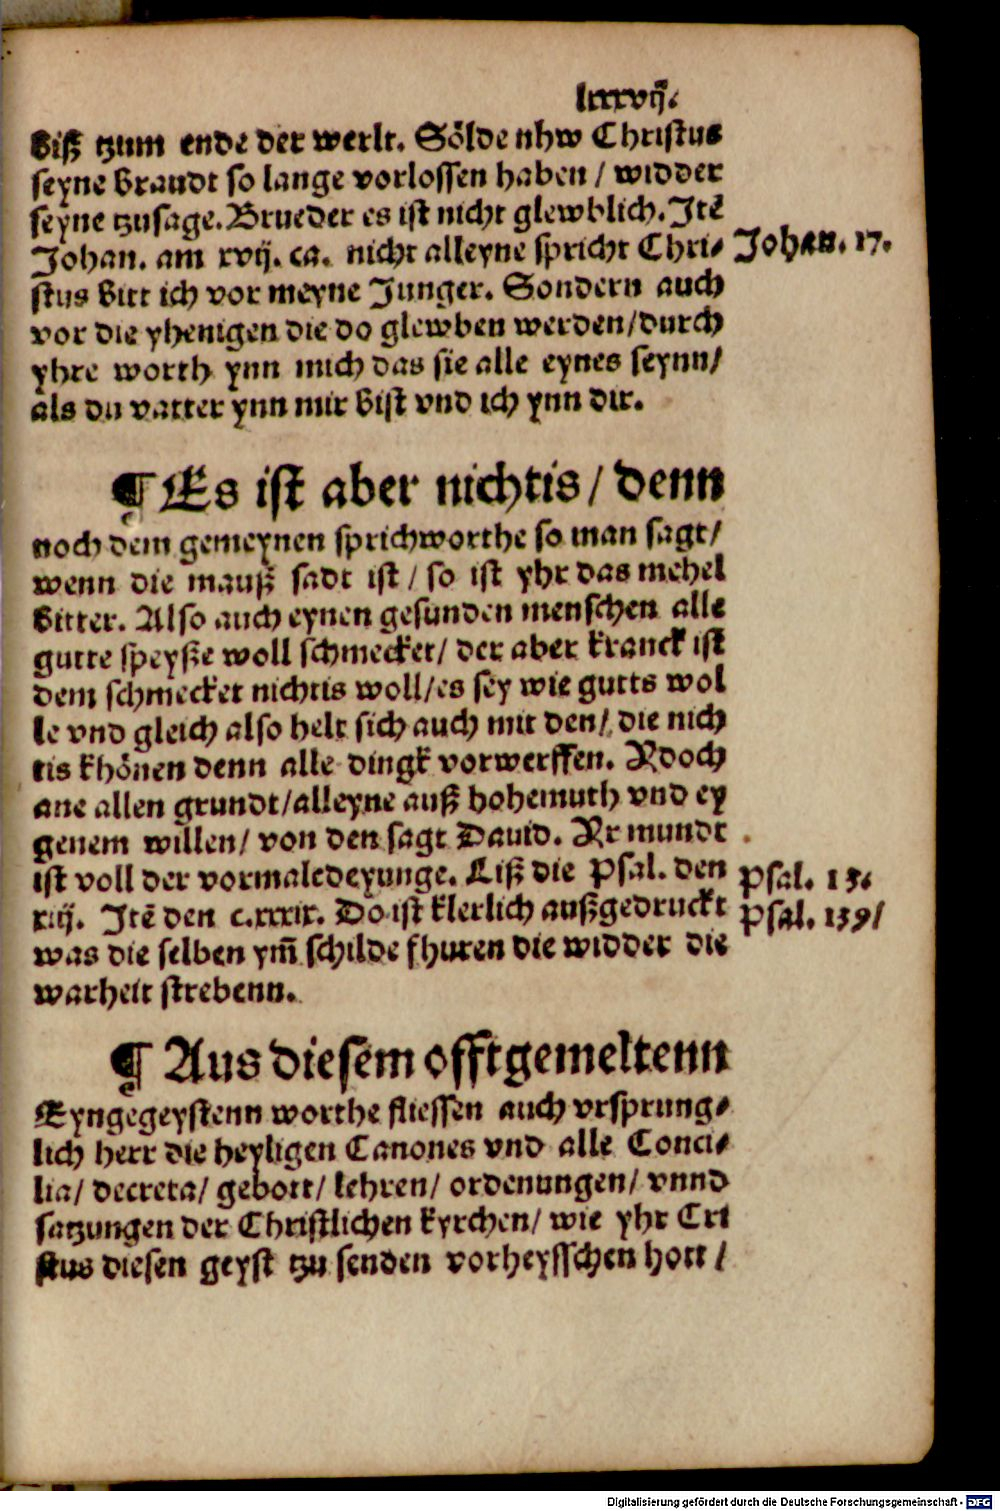 lxxxvij.
biß tzum ende der werlt. Sölde nhw Christus
seyne braudt so lange vorlossen haben / widder
seyne tzusage. Brueder es ist nicht glewblich. Itē
Johan. am xvij. ca. nicht alleyne spricht Chri-
Johan. 17.
stus bitt ich vor meyne Junger. Sondern auch
vor die yhenigen die do glewben werden/durch
yhre worth ynn mich das sie alle eynes seynn/
als du vatter ynn mir bist vnd ich ynn dir.
¶ Es ist aber nichtis / denn
noch dem gemeynen sprichworthe so man sagt/
wenn die mauß sadt ist / so ist yhr das mehel
bitter. Also auch eynen gesunden menschen alle
gutte speyße woll schmecket/ der aber kranck ist
dem schmecket nichtis woll/es sey wie gutts wol
le vnd gleich also helt sich auch mit den/ die nich
tis khönen denn alle dingk vorwerffen. Ydoch
ane allen grundt/alleyne auß hohemuth vnd ey
genem willen/ von den sagt Dauid. Yr mundt
ist voll der vormaledeyunge. Liß die Psal. den
Psal. 13.
xiij. Itē den c.xxxix. Do ist klerlich außgedruckt
Psal. 139/
was die selben ym̄ schilde fhuren die widder die
warheit strebenn.
¶ Aus diesem offtgemeltenn
Eyngegeystenn worthe fliessen auch vrsprung-
lich herr die heyligen Canones vnd alle Conci-
lia/ decreta/ gebott/ lehren/ ordenungen/ vnnd
satzungen der Christlichen kyrchen/ wie yhr Cri
stus diesen geyst tzu senden vorheysschen hott /
Digitalisierung gefördert durch die Deutsche Forschungsgemeinschaft - DFG